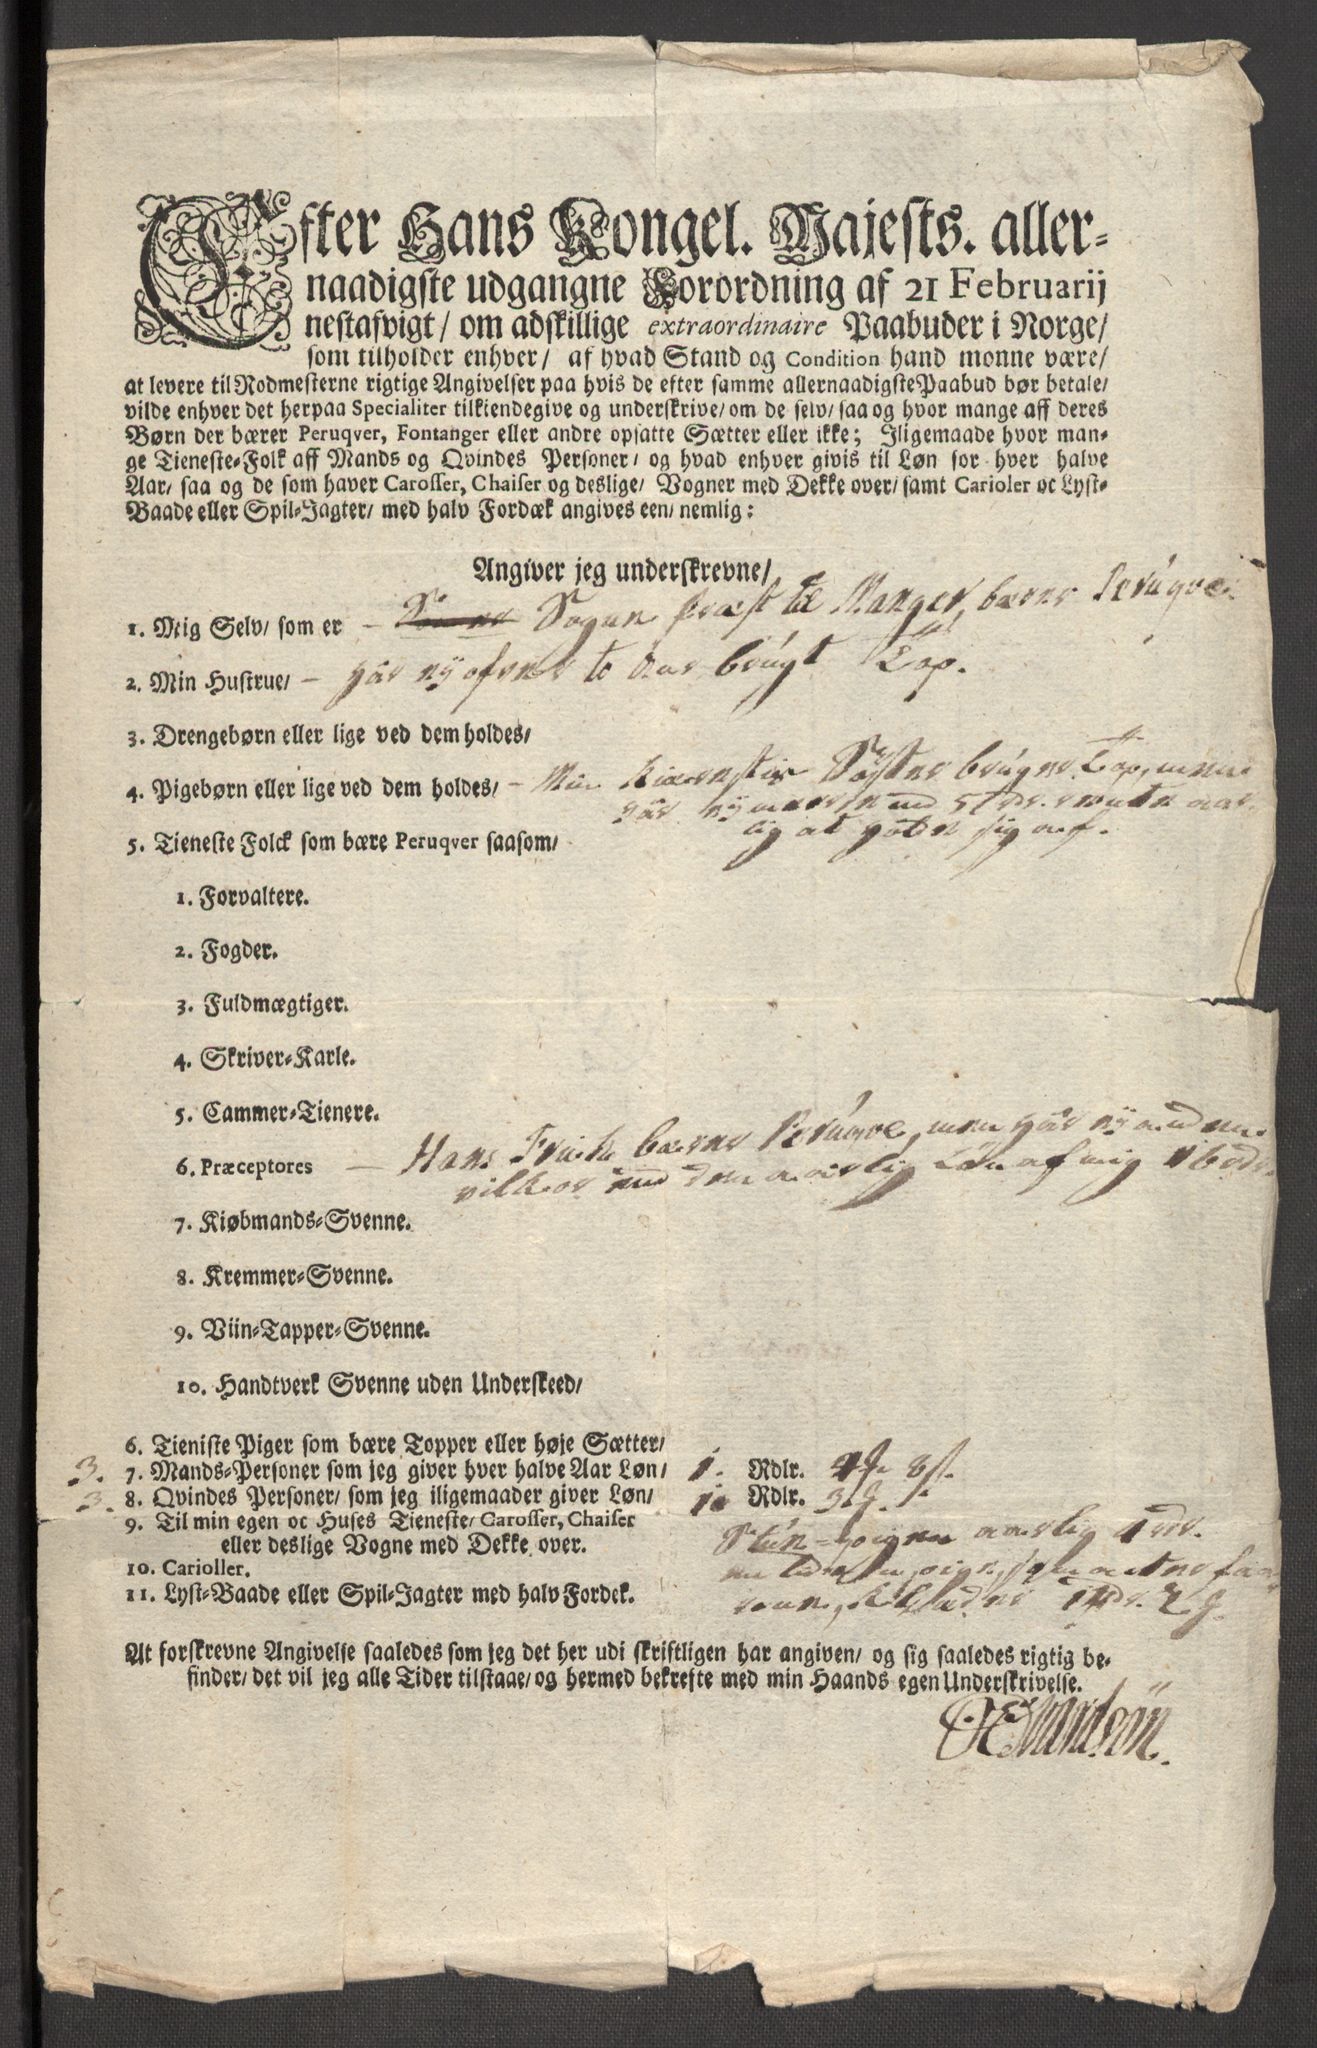 Efter Hans Kongel. Majests. aller-
naadigste udgangne Forordning af 21 Februarij
nestafvigt/ om adskillige extraordinaire Paabuder i Norge/
som tilholder enhver/ af hvad Stand og Condition hand monne være/
at levere til Rodmesterne rigtige Angivelser paa hvis de efter samme allernaadigste Paabud bør betale/
vilde enhver det herpaa Specialiter tilkiendegive og underskrive/ om de selv/ saa og hvor mange aff deres
Børn der bærer Peruqver, Fontanger eller andre opsatte Sætter eller ikke; Iligemaade hvor man-
ge Tieneste-Folk aff Mands og Qvindes Personer/ og hvad enhver givis til Løn for hver halve
Aar/ saa og de som haver Carosser, Chaiser og deslige/ Vogner med Dekke over/ samt Carioler oc Lyst-
Baade eller Spil-Jagter/ med halv Fordæk angives een/ nemlig:
Angiver jeg underskrevne/
1. Mig Selv/ som er – Sogne præst til Manger, bærer Perúqve
2. Min Hustrue/ – har ny ofver to Aar brúgt Top.
3. Drengebørn eller lige ved dem holdes/
4. Pigebørn eller lige ved dem holdes/ – Min Søster brúger Top, men
har 5 rdr. aar-
lig at sig af.
5. Tieneste Folck som bære Peruqver saasom/
1. Forvaltere.
2. Fogder.
3. Fuldmægtiger.
4. Skriver-Karle.
5. Cammer-Tienere.
6. Præceptores – Hans Frick bærer Perúqve, men har ny anden
vilkor end den aarlig Løn af mig 16 rdr.
7. Kiøbmands-Svenne.
8. Kremmer-Svenne.
9. Viin-Tapper-Svenne.
10. Handtverk Svenne uden Underskeed/
6. Tieniste Piger som bære Topper eller høje Sætter/
3. 7. Mands-Personer som jeg giver hver halve Aar Løn/ 1. Rdlr. 8 s.
3. 8. Qvindes Personer/ som jeg iligemaader giver Løn/ 1. Rdlr. 3
9. Til min egen oc Huses Tieneste/ Carosser, Chaiser
eller deslige Vogne med Dekke over.
aarlig rdr.
10. Carioller.
11. Lyst-Baade eller Spil-Jagter med halv Fordek.
At forskrevne Angivelse saaledes som jeg det her udi skriftligen har angiven/ og sig saaledes rigtig be-
finder/ det vil jeg alle Tider tilstaae/ og hermed bekrefte med min Haands egen Underskrivelse.